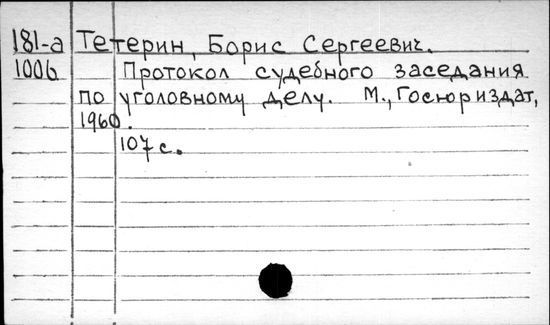 181-а Тетерин, Борис Сергеевич.
1006 Протокол судебного заседания
по уголовному делу. М., Госюриздат,
1960.
107 с.